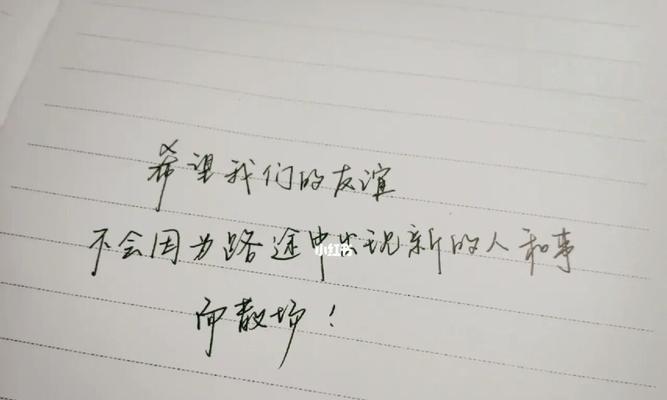 希望我们的友谊
不会因为路途中出现新的人和事
而散场！
小红书